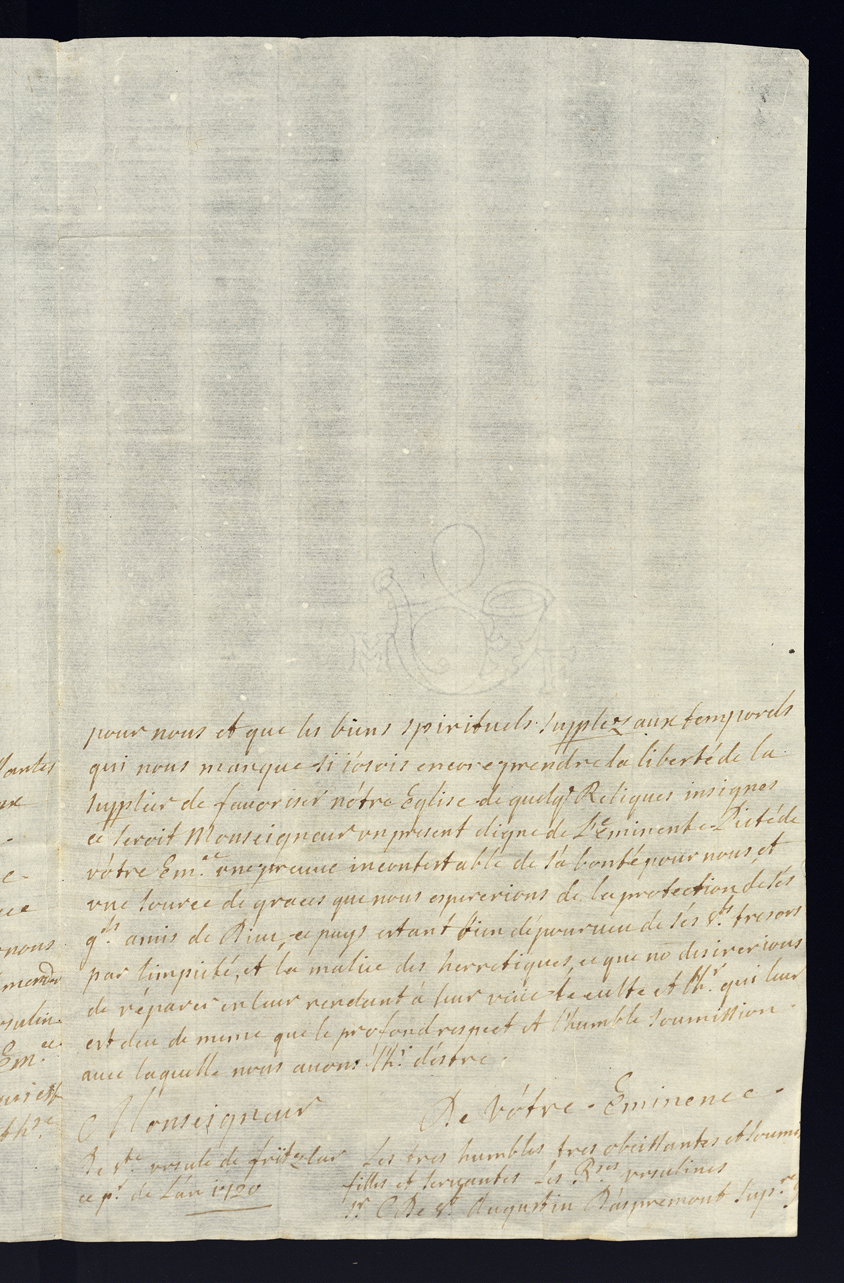 pour nous et que les biens spirituels supplez aux temporels
qui nous manque si i'osois encore prendre la liberté de la
supplier de favoriser nótre Eglise de quelqs Reliques insignes
ce seroit Monseigneur un present digne de L'Eminente Pieté de
vótre Em.ce une preuve incontestable de sá bonté pour nous, et
une source de graces que nous espererions de la protection de sés
gds amis de Dieu, ce pays estant bien dépourveu de sés sts tresors
par l'impieté, et la malice des herretiques, ce que no desirerions
de réparer en leur rendant á leur vüie le culte et l'hr. qui leur
est deu de meme que le profond respect et l'humble soumission
avec laquelle nous avons l'hr déstre
Monseigneur
De Vótre Eminence
Les tres humbles tres obeissantes et soumi
filles et servantes Les Rses ursulines
sr C De st Augustin Dáspremont Supre
De ste ursule de fritzlar
ce pr de L'an 1720
antes
ux
ce
nous
mende
rsulin
Em.ce